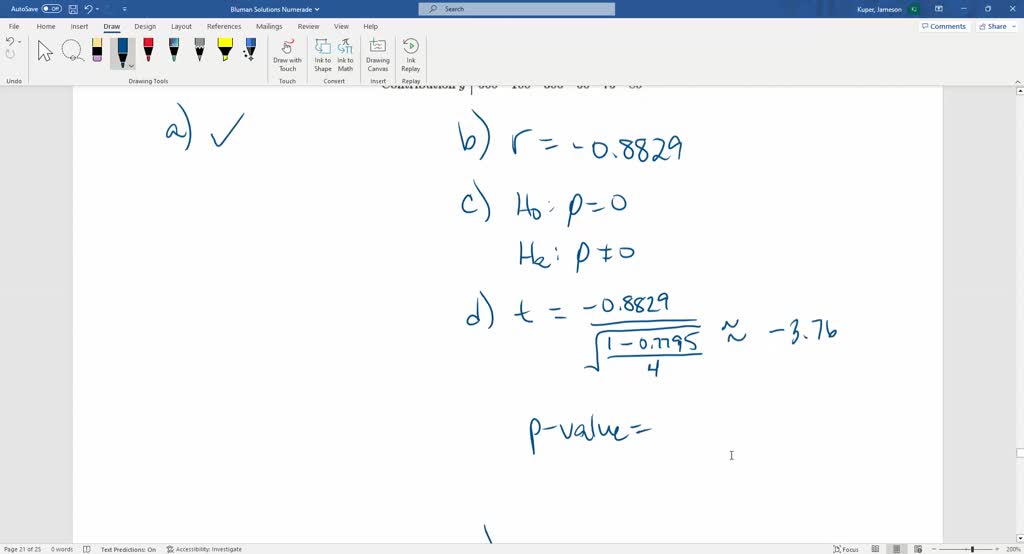 AutoSave Off
Bluman Solutions Numerade
Search
Kuper, Jameson
File Home Insert Draw Design Layout References Mailings Review View Help
Comments Share
Undo
Draw with Touch
Ink to Shape
Ink to Math
Drawing Canvas
Ink Replay
Drawing Tools Touch Convert Insert Replay
a) ✓
b) r = -0.8829
c) H₀: ρ = 0
ρ ≠ 0
d) t = -0.8829 / √((1 - 0.7795) / 4) ≈ -3.76
p-value =
Page 21 of 25 0 words Text Predictions: On Accessibility: Investigate
Focus 200%